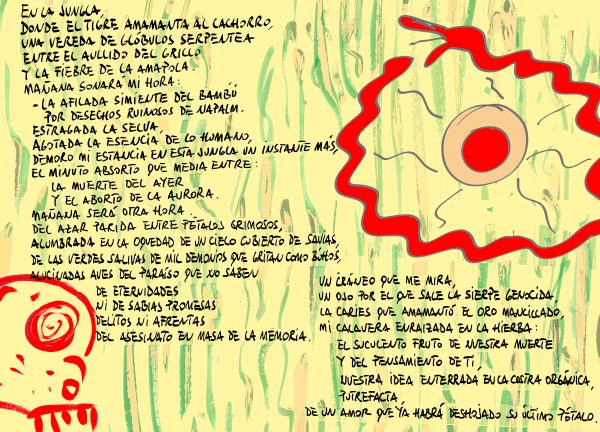 EN LA JUNGLA,
DONDE EL TIGRE AMAMANTA AL CACHORRO,
UNA VEREDA DE GLÓBULOS SERPENTEA
ENTRE EL AULLIDO DEL GRILLO
Y LA FIEBRE DE LA AMAPOLA.
MAÑANA SONARÁ MI HORA:
- LA AFILADA SIMIENTE DEL BAMBÚ
POR DESECHOS RUINOSOS DE NAPALM.
ESTRAGADA LA SELVA,
AGOTADA LA ESENCIA DE LO HUMANO,
DEMORO MI ESTANCIA EN ESTA JUNGLA UN INSTANTE MÁS,
EL MINUTO ABSORTO QUE MEDIA ENTRE:
LA MUERTE DEL AYER
Y EL ABORTO DE LA AURORA.
MAÑANA SERÁ OTRA HORA
DEL AZAR PARIDA ENTRE PÉTALOS GRIMOSOS,
ALUMBRADA EN LA OQUEDAD DE UN CIELO CUBIERTO DE SAVIAS,
DE LAS VERDES SALIVAS DE MIL DEMONIOS QUE GRITAN COMO BÚHOS,
ALUCINADAS AVES DEL PARAÍSO QUE NO SABEN
DE ETERNIDADES
NI DE SABIAS PROMESAS
DELITOS NI AFRENTAS
DEL ASESINATO EN MASA DE LA MEMORIA.
UN CRÁNEO QUE ME MIRA,
UN OJO POR EL QUE SALE LA SIERPE GENOCIDA,
LA CARIES QUE AMAMANTÓ EL ORO MANCILLADO,
MI CALAVERA ENRAIZADA EN LA HIERBA:
EL SUCULENTO FRUTO DE NUESTRA MUERTE
Y DEL PENSAMIENTO DE TÍ,
NUESTRA IDEA ENTERRADA EN LA COSTRA ORGÁNICA,
PUTREFACTA,
DE UN AMOR QUE YA HABRÁ DESHOJADO SU ÚLTIMO PÉTALO.